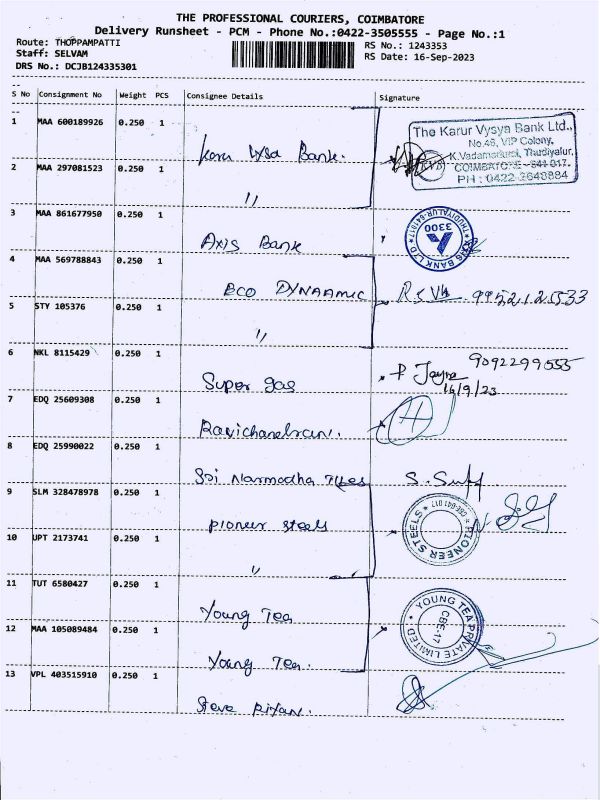 THE PROFESSIONAL COURIERS, COIMBATORE
Delivery Runsheet - PCM - Phone No.:0422-3505555 - Page No.:1
Route: THOPPAMPATTI
RS No.: 1243353
Staff: SELVAM
RS Date: 16-Sep-2023
DRS No.: DCJB124335301
S No Consignment No Weight PCS Consignee Details Signature
1 MAA 600189926 0.250 1
Karu Vysa Bank.
The Karur Vysya Bank Ltd.,
No.46, VIP Colony,
K.Vadamadurai, Thudiyalur,
COIMBATORE - 641 017.
PH : 0422-2648884
KVB
2 MAA 297081523 0.250 1
"
3 MAA 861677950 0.250 1
Axis Bank
AXIS BANK LTD THUDIYALUR-641017
3300
4 MAA 569788843 0.250 1
ECO DYNAAMIC
9952125533
5 STY 105376 0.250 1
"
6 NKL 8115429 0.250 1
Super gas
P Jaya 9092299555
16/9/23
7 EDQ 25609308 0.250 1
Ravichandran.
8 EDQ 25990022 0.250 1
Sri Narmadha Tiles
9 SLM 328478978 0.250 1
pioneer steels
PIONEER STEELS CBE-641 017
10 UPT 2173741 0.250 1
"
11 TUT 6580427 0.250 1
Young Tea
YOUNG TEA PRIVATE LIMITED
CBE-17
12 MAA 105089484 0.250 1
Young Tea.
13 VPL 403515910 0.250 1
Steve